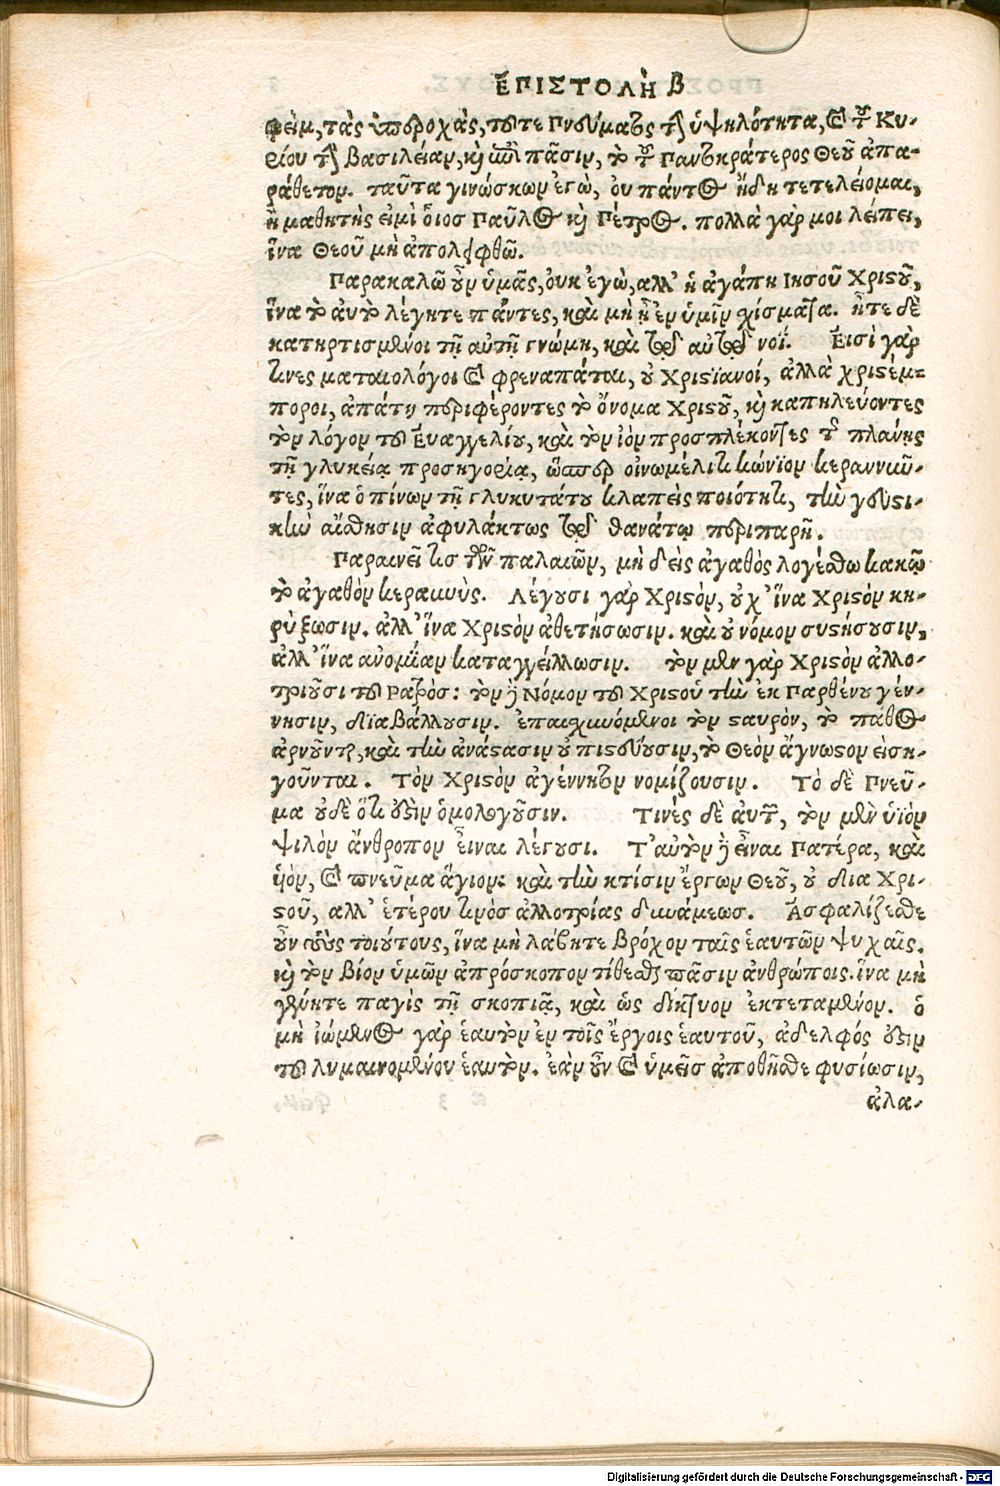 ἘΠΙΣΤΟΛῊ Β
φὶμ, τὰς ὑπεροχὰς, τοῦτε Πνεύματος τὴν ὑψηλότητα, καὶ τοῦ Κυ-
ρίου τὴν βασιλείαν, καὶ ἐπὶ πᾶσιν, τὸ τοῦ Παντοκράτερος Θεοῦ ἀπα-
ράθετον. ταῦτα γινώσκων ἐγὼ, οὐ πάντως ἤδη τετελείομαι,
ἢ μαθητὴς εἰμὶ οἷοσ Παῦλος καὶ Πέτρος. πολλὰ γὰρ μοι λείπει,
ἵνα Θεοῦ μὴ ἀπολειφθῶ.
Παρακαλῶ οὖν ὑμᾶς, οὐκ ἐγὼ, ἀλλ' ἡ ἀγάπη Ιησοῦ Χριστοῦ,
ἵνα τὸ αὐτὸ λέγητε πάντες, καὶ μὴ ᾖ ἐν ὑμῖν χίσματα. ἦτε δὲ
κατηρτισμένοι τῇ αὐτῇ γνώμῃ, καὶ τῷ αὐτῷ νοΐ. Εἰσὶ γὰρ
τινες ματαιολόγοι καὶ φρεναπάται, οὐ Χριστϊανοί, ἀλλὰ χριστέμ-
ποροι, ἀπάτῃ περιφέροντες τὸ ὄνομα Χριστοῦ, καὶ καπηλεύοντες
τὸν λόγον τοῦ Εὐαγγελίου, καὶ τὸν ἰὸν προσπλέκοντες τῆς πλάνης
τῇ γλυκείᾳ προσηγορίᾳ, ὥσπερ οἰνωμέλιτι κώνϊον κεραννοῦν-
τες, ἵνα ὁ πίνων τῇ γλυκυτάτου κλαπεὶς ποιότητι, τὴν γευστι-
κὴν αἴσθησιν ἀφυλάκτως τῷ θανάτῳ περιπαρῇ.
Παραινεῖ τισ τῶν παλαιῶν, μηδεὶς ἀγαθὸς λογέσθω κακῷ
τὸ ἀγαθὸν κεραννὺς. Λέγουσι γὰρ Χριστὸν, οὐχ' ἵνα Χριστὸν κη-
ρύξωσιν. ἀλλ' ἵνα Χριστὸν ἀθετήσωσιν. καὶ οὐ νόμον συστήσουσιν,
ἀλλ' ἵνα ἀνομΐαν καταγγείλλωσιν. τὸν μὲν γὰρ Χριστὸν ἀλλο-
τριοῦσι τοῦ Πατρὸσ: τὸν δὲ Νόμον τοῦ Χριστοῦ τὴν ἐκ Παρθένου γέν-
νησιν, διαβάλλουσιν. ἐπαισχυνόμενοι τὸν σταυρὸν, τὸ πάθος
ἀρνοῦνται, καὶ τὴν ἀνάστασιν οὐ πιστεύουσιν, τὸ Θεὸν ἄγνωστον εἰση-
γοῦνται. Τὸν Χριστὸν ἀγέννητον νομίζουσιν. Τὸ δὲ Πνεῦ-
μα οὐδὲ ὅτι ἐστὶν ὁμολογοῦσιν. Τινὲς δὲ αὐτῶν, τὸν μὲν ὑϊὸν
ψιλὸν ἄνθροπον εἶναι λέγουσι. Ταὐτὸν δὲ εἶναι Πατέρα, καὶ
ὑὸν, καὶ πνεῦμα ἅγιον: καὶ τὴν κτίσιν ἔργων Θεοῦ, οὐ δια Χρι-
στοῦ, ἀλλ' ἑτέρου τινὸς ἀλλοτρίας δυνάμεωσ. Ἀσφαλίζεσθε
οὖν τοὺς τοιούτους, ἵνα μὴ λάβητε βρόχον ταῖς ἑαυτῶν ψυχαῖς.
καὶ τὸν βίον ὑμῶν ἀπρόσκοπον τίθεσθε πᾶσιν ἀνθρώποις. ἵνα μὴ
γένητε παγὶς τῇ σκοπιᾷ, καὶ ὡς δίκτυον ἐκτεταμένον. ὁ
μὴ ἰώμενος γὰρ ἑαυτὸν ἐν τοῖς ἔργοις ἑαυτοῦ, ἀδελφός ἐστιν
τοῦ λυμαινομένου ἑαυτὸν. ἐὰν οὖν καὶ ὑμεῖσ ἀποθῆσθε φυσίωσιν,
ἀλα-
Digitalisierung gefördert durch die Deutsche Forschungsgemeinschaft - DFG